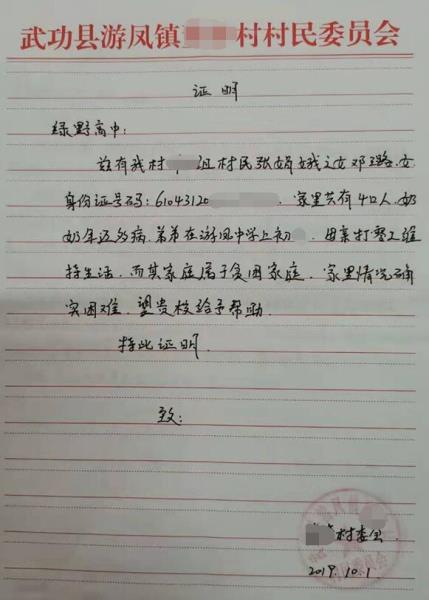 武功县游凤镇 村村民委员会
证明
绿野高中：
兹有我村 组村民张娟娥之女邓璐，女
身份证号码：61043120 ，家里共有4口人，奶
奶年迈多病，弟弟在游凤中学上初 ，母亲打零工维
持生活，而其家庭属于贫困家庭，家里情况确
实困难，望贵校给予帮助.
特此证明.
致：
村委会
2019.10.1